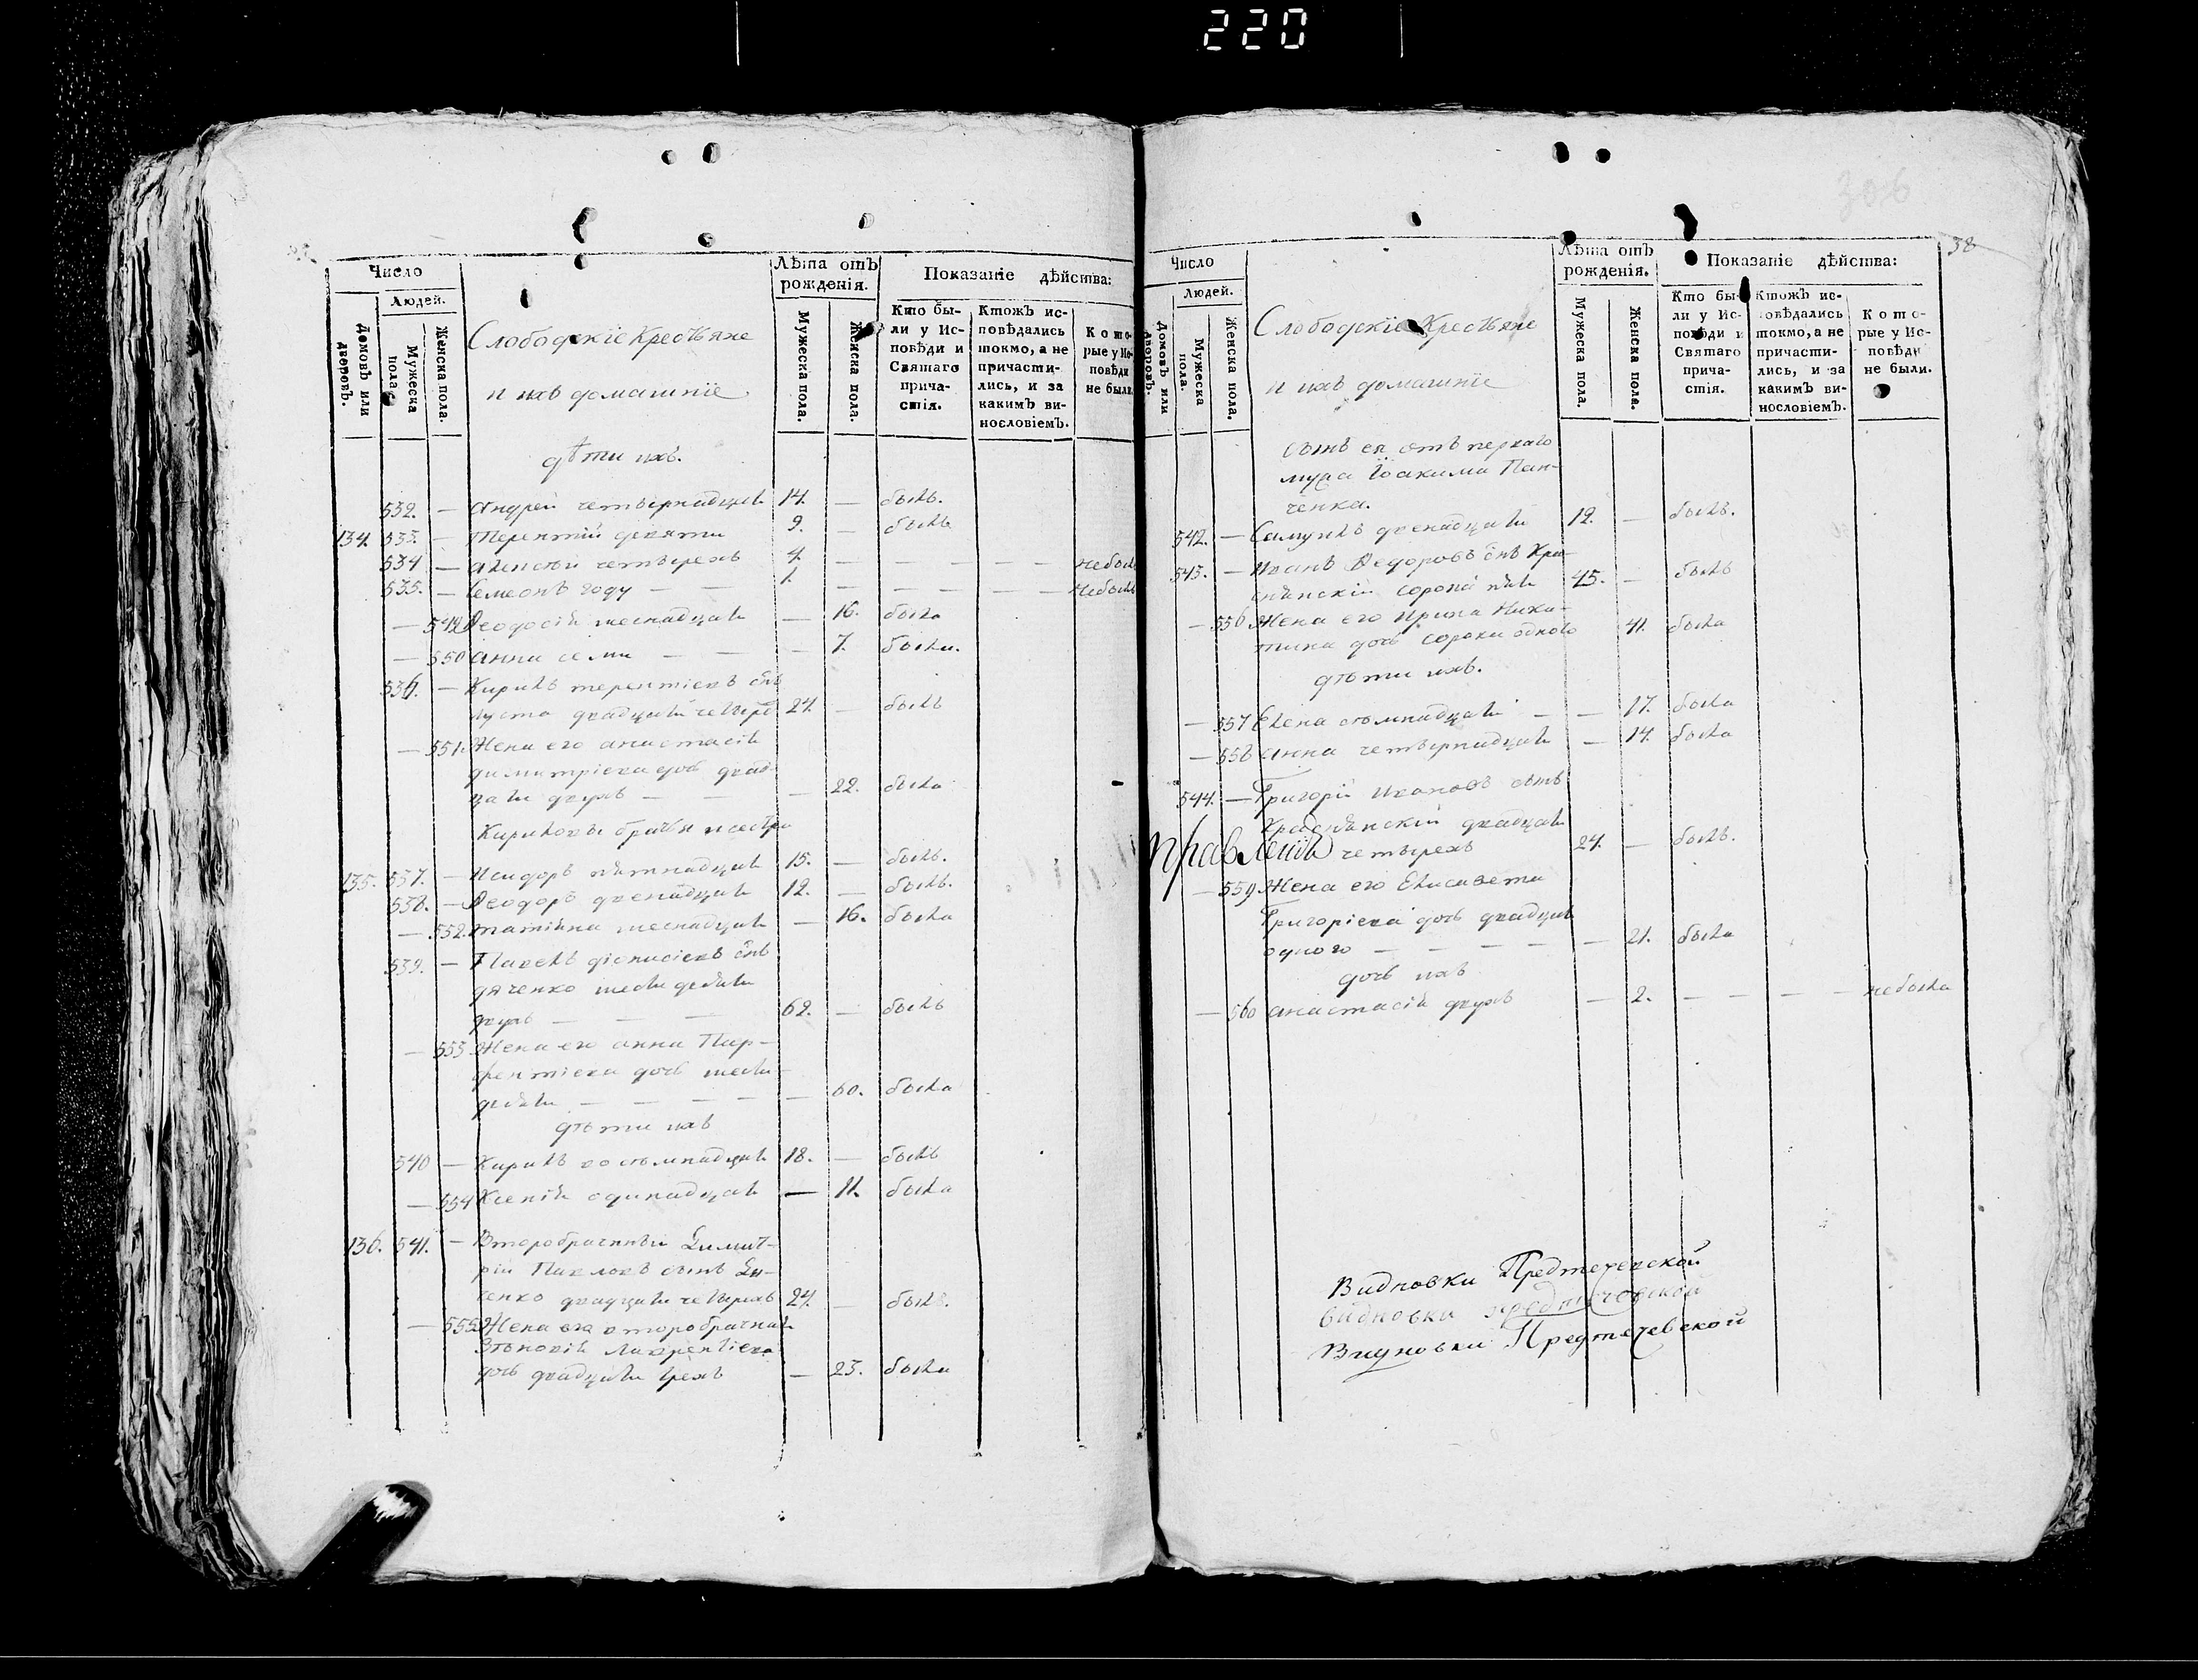 220
306
38
Число
Людей.
Домовъ или дворовъ.
Мужеска пола.
Женска пола.
Слободскіе Крестьяне
и ихъ домашніе
Лѣта отъ
рожденія.
Мужеска пола.
Женска пола.
Показаніе дѣйства:
Кто бы-
ли у Ис-
повѣди и
Святаго
прича-
стія.
Ктожъ ис-
повѣдались
токмо, а не
причасти-
лись, и за
какимъ ви-
нословіемъ.
Кото-
рые у Ис-
повѣди
не были.
дѣти ихъ.
532. — Андрей четырнадцати 14. — былъ.
134. 533. — Терентій девяти 9. — былъ
534 — Алексѣй четырехъ 4. — — — — — небылъ
535. — Семеонъ году — — 1. — — — — — небылъ
— 549 Ѳеодосія шеснадцати — 16. была
— 550 Анна семи — — — 7. была.
536. — Кирилъ терентіевъ снъ
двадцати четыре 24. — былъ
— 551. Жена его анастасія
димитріева дочь двад-
цати двухъ — — — 22. была
Кириловы братья и сестра
135. 537. — Исидоръ пятнадцати 15. — былъ.
538. — Ѳеодоръ двенадцати 12. — былъ.
— 552. татіяна шеснадцати — 16. была
539. — Павелъ діонисіевъ снъ
дяченко шестидесяти
двухъ — — — 62. — былъ
— 553 Жена его анна Пар-
фентіева дочь шести-
десяти — — — — — 60. была
дѣти ихъ
540 — Кирилъ восѣмнадцати 18. — былъ
— 554 Ксенія одинадцати — 11. была
136. 541. — Второбрачный Димит-
рій Павловъ сынъ Дя-
ченко двадцати четырехъ 24. — былъ.
— 555 Жена его второбрачная
Зѣновія Лаврентіева
дочь двадцати трехъ — 23. была
Число
Людей.
Домовъ или дворовъ.
Мужеска пола.
Женска пола.
Слободскіе Крестьяне
и ихъ домашніе
Лѣта отъ
рожденія.
Мужеска пола.
Женска пола.
Показаніе дѣйства:
Кто бы-
ли у Ис-
повѣди и
Святаго
прича-
стія.
Ктожъ ис-
повѣдались
токмо, а не
причасти-
лись, и за
какимъ ви-
нословіемъ.
Кото-
рые у Ис-
повѣди
не были.
сынъ ея отъ перваго
мужа Іоакима Пан-
ченка.
542. — Самуилъ двенадцати 12. — былъ.
543. — Иванъ Ѳедоровъ снъ Кра-
снянскій сорока пяти 45. — былъ
— 556 Жена его Ирина Ники-
тина дочь сорока одного 41. была
дѣти ихъ.
— 557 Елена семнадцати — — 17. была
— 558 Анна четырнадцати — 14. была
544. — Григорій Ивановъ сынъ
Краснянскій двадцати
правленія четырехъ 24. — былъ.
— 559. Жена его Елисавета
Григоріева дочь двадцати
одного — — — — — 21. была
дочь ихъ
— 560 анастасія двухъ — 2. — — — — небыла
Видновки Предтечевской
видновки предтечевской
Видновки Предтечевской